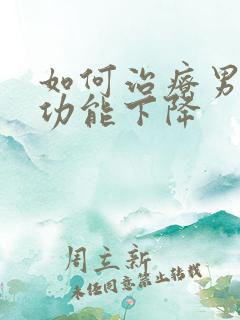 如何治疗男
功能下降
周立新
未经同意禁止转载